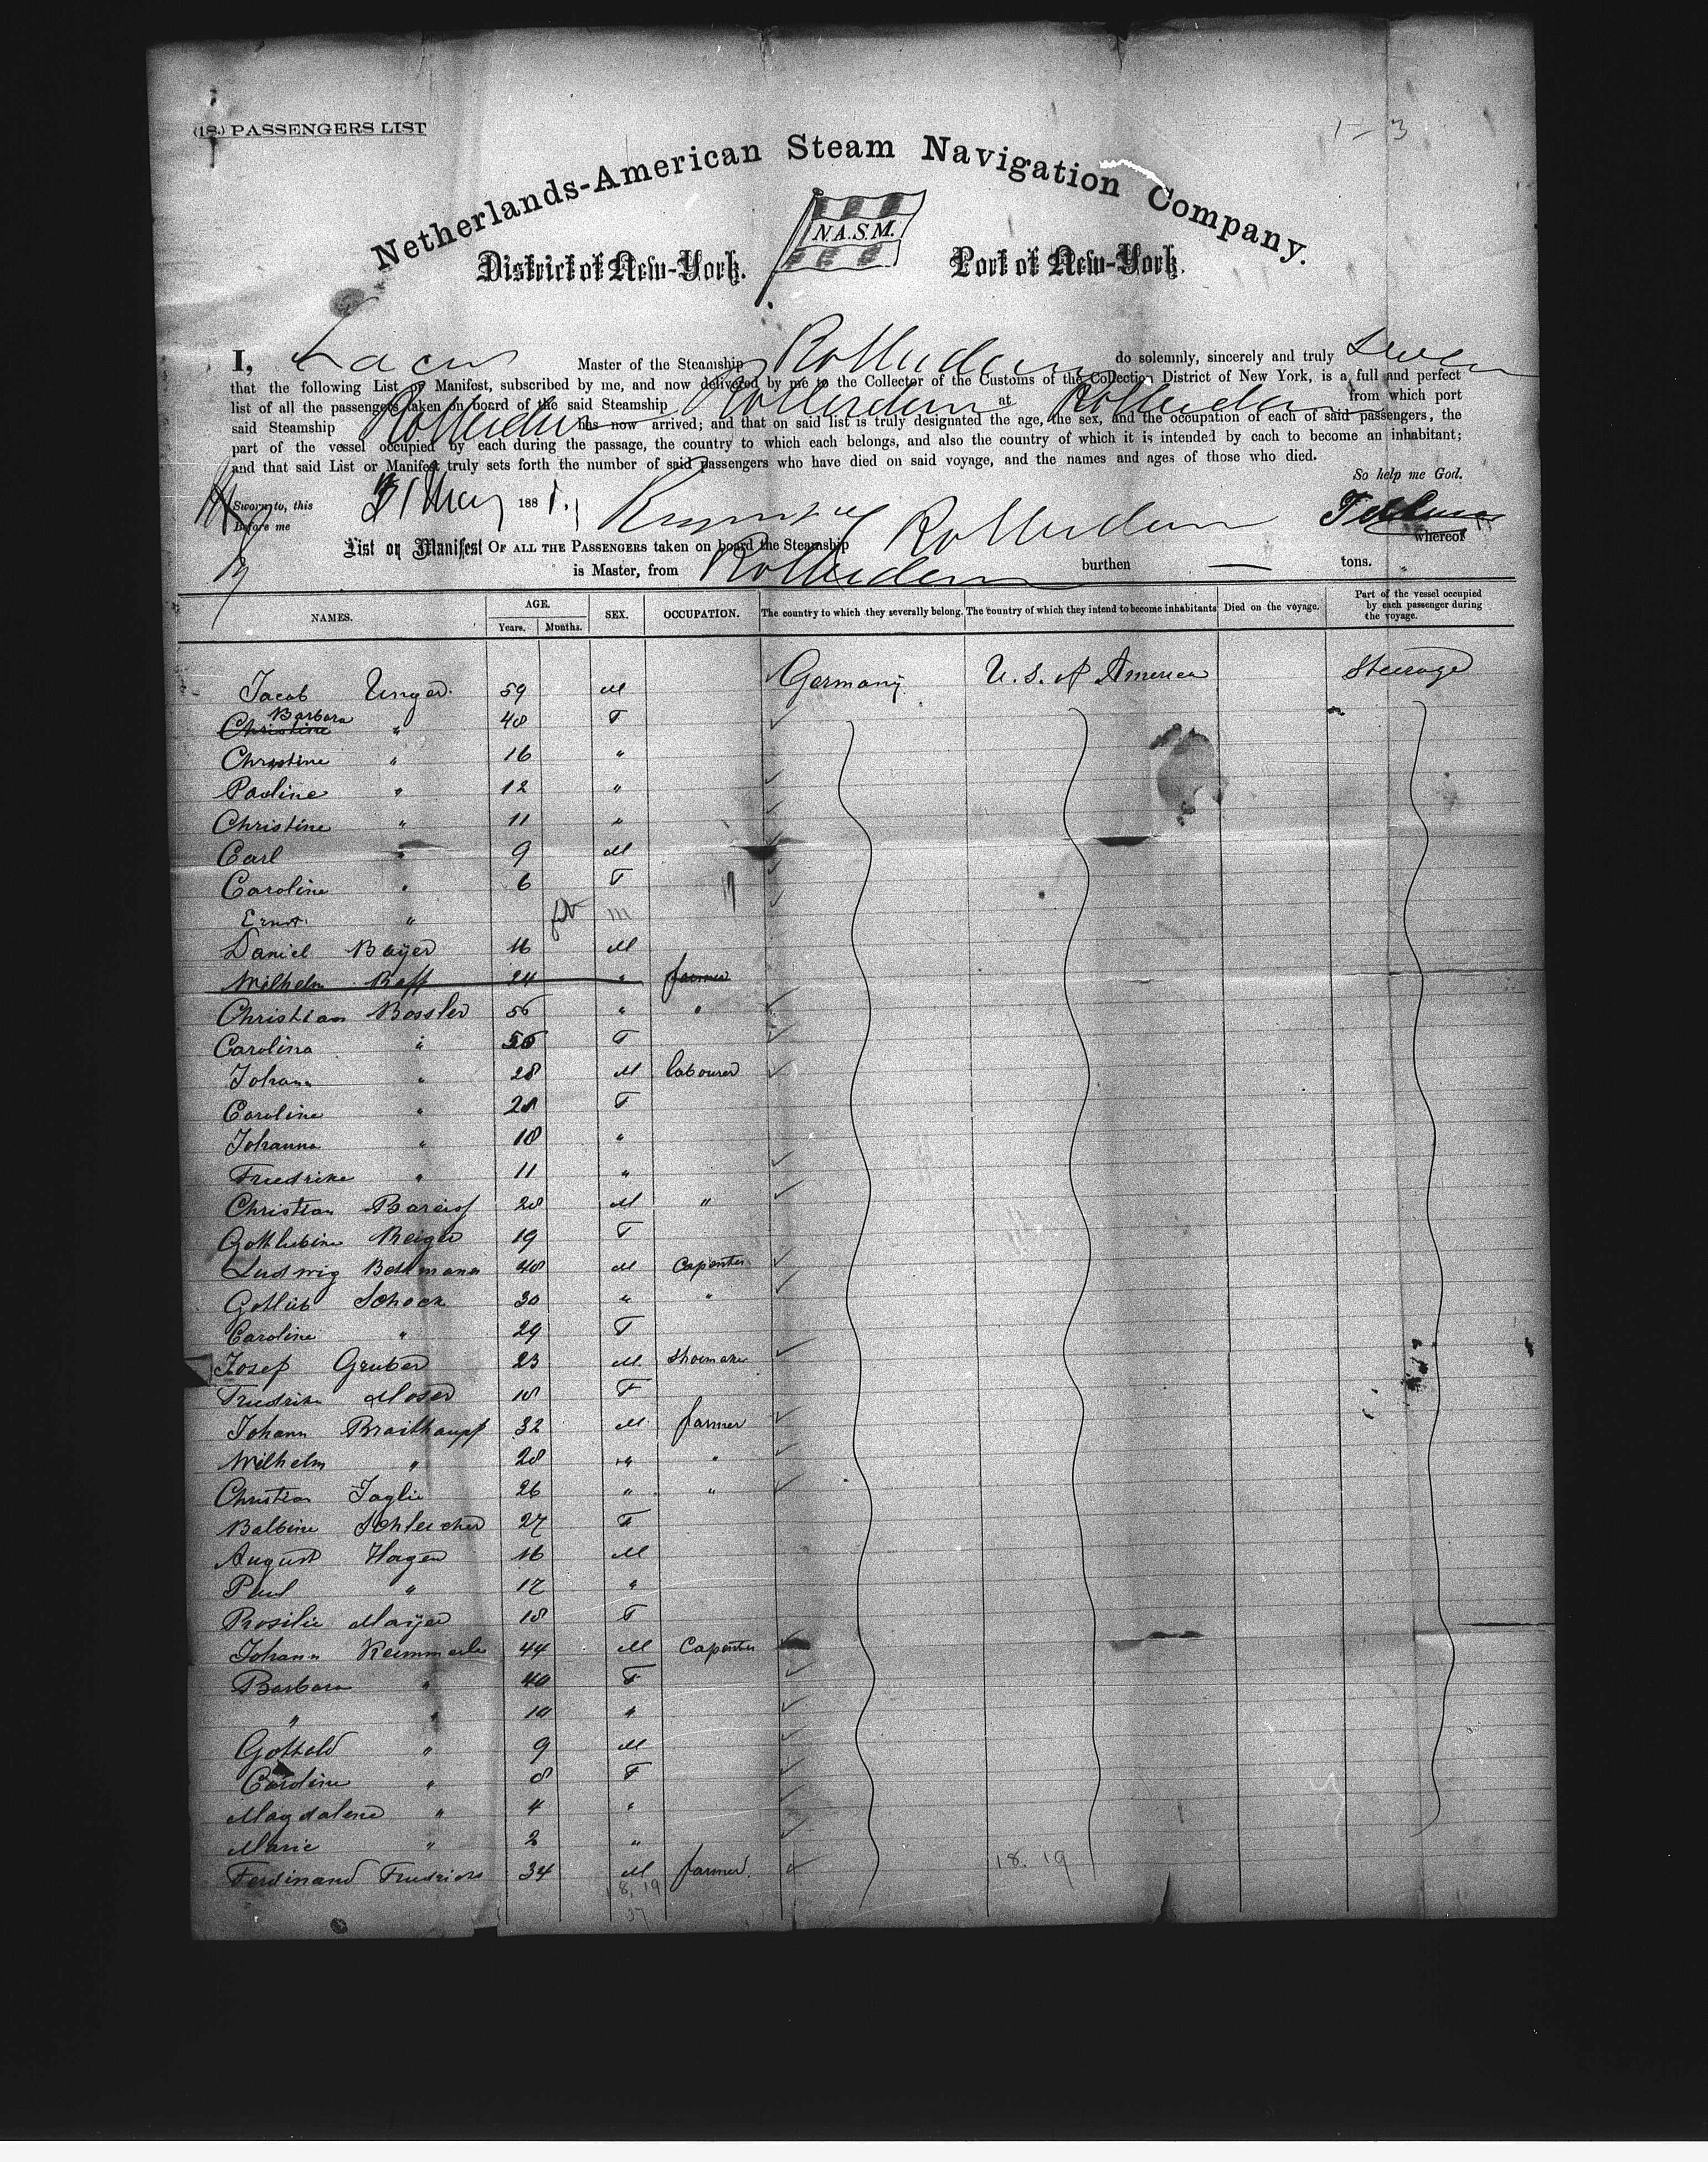 (18.) PASSENGERS LIST
1 - 3
Netherlands-American Steam Navigation Company.
N.A.S.M.
District of New-York. Port of New-York.
I, Master of the Steamship Rotterdam do solemnly, sincerely and truly swear
that the following List or Manifest, subscribed by me, and now delivered by me to the Collector of the Customs of the Collection District of New York, is a full and perfect
list of all the passengers taken on board of the said Steamship Rotterdam at Rotterdam from which port
said Steamship Rotterdam has now arrived; and that on said list is truly designated the age, the sex, and the occupation of each of said passengers, the
part of the vessel occupied by each during the passage, the country to which each belongs, and also the country of which it is intended by each to become an inhabitant;
and that said List or Manifest truly sets forth the number of said passengers who have died on said voyage, and the names and ages of those who died.
So help me God.
Sworn to, this 31 May 1881.
Before me
List or Manifest OF ALL THE PASSENGERS taken on board the Steamship Rotterdam whereof
is Master, from Rotterdam burthen — tons.
NAMES. AGE. SEX. OCCUPATION. The country to which they severally belong. The country of which they intend to become inhabitants Died on the voyage. Part of the vessel occupied by each passenger during the voyage.
Years. Months.
Jacob Unger 59 M Germany U. S. of America Steerage
Christine Barbara " 48 F
Christine " 16 "
Pauline " 12 "
Christine " 11 "
Carl " 9 M
Caroline " 6 F
Ernst "
Daniel Bayer 16 M
Wilhelm Raff 24 " farmer
Christian Bossler 56 " "
Carolina " 56 F
Johann " 28 M labourer
Caroline " 28 F
Johanna " 18 "
Friedrike " 11 "
Christian Bareiss 28 M "
Gottlubine Reiger 19 F
Ludwig Bethmann 48 M Capenter
Gotlieb Schock 30 " "
Caroline " 29 F
Josef Gruber 23 M Shoemaker
Friedrike Moser 18 F
Johann Braithaupt 32 M farmer
Wilhelm " 28 " "
Christian 26 " "
Balbine Schleicher 27 F
August Hagen 16 M
Paul " 17 "
Rosilie Mayer 18 F
Johann Kemmerle 44 M Capenter
Barbara " 40 F
" " 10 "
Gottold " 9 M
Caroline " 8 F
Magdalene " 4 "
Marie " 2 "
Ferdinand 34 M farmer
18. 19
18, 19
37